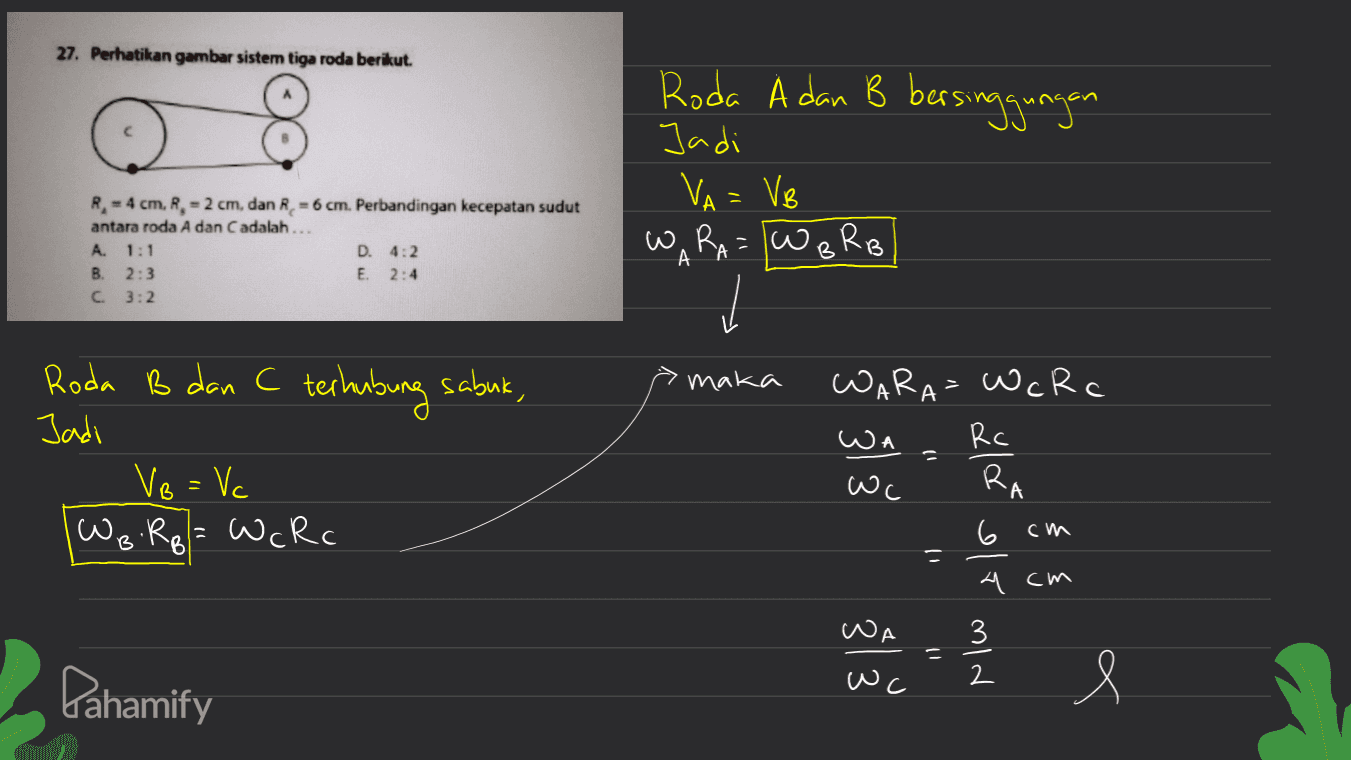 27. Perhatikan gambar sistem tiga roda berikut.
A
C
B
R_A = 4 cm, R_B = 2 cm, dan R_C = 6 cm. Perbandingan kecepatan sudut
antara roda A dan C adalah ...
A. 1 : 1
B. 2 : 3
C. 3 : 2
D. 4 : 2
E. 2 : 4
Roda A dan B bersinggungan
Jadi
V_A = V_B
ω_A R_A = ω_B R_B
Roda B dan C terhubung sabuk,
Jadi
V_B = V_C
ω_B . R_B = ω_C R_C
maka ω_A R_A = ω_C R_C
ω_A / ω_C = R_C / R_A
= 6 cm / 4 cm
ω_A / ω_C = 3 / 2
Pahamify